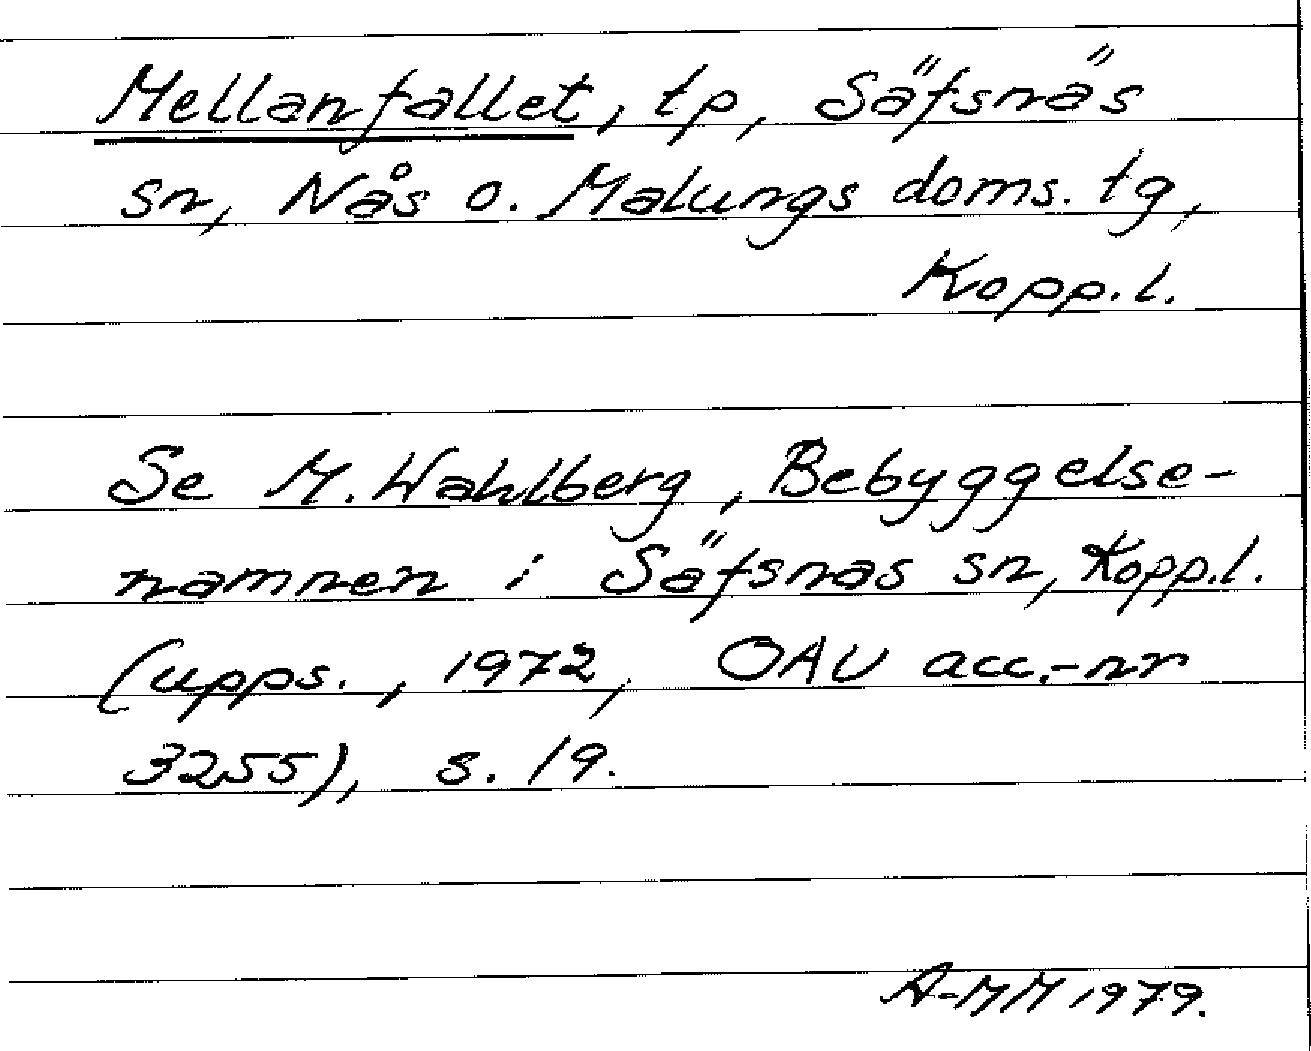 Mellanfallet, tp, Säfsnäs
sn, Nås o. Malungs doms. tg,
Kopp.l.
Se M. Wahlberg, Bebyggelse-
namnen i Säfsnas sn, Kopp.l.
(upps., 1972, OAU acc.-nr
3255), s. 19.
A-MM 1979.